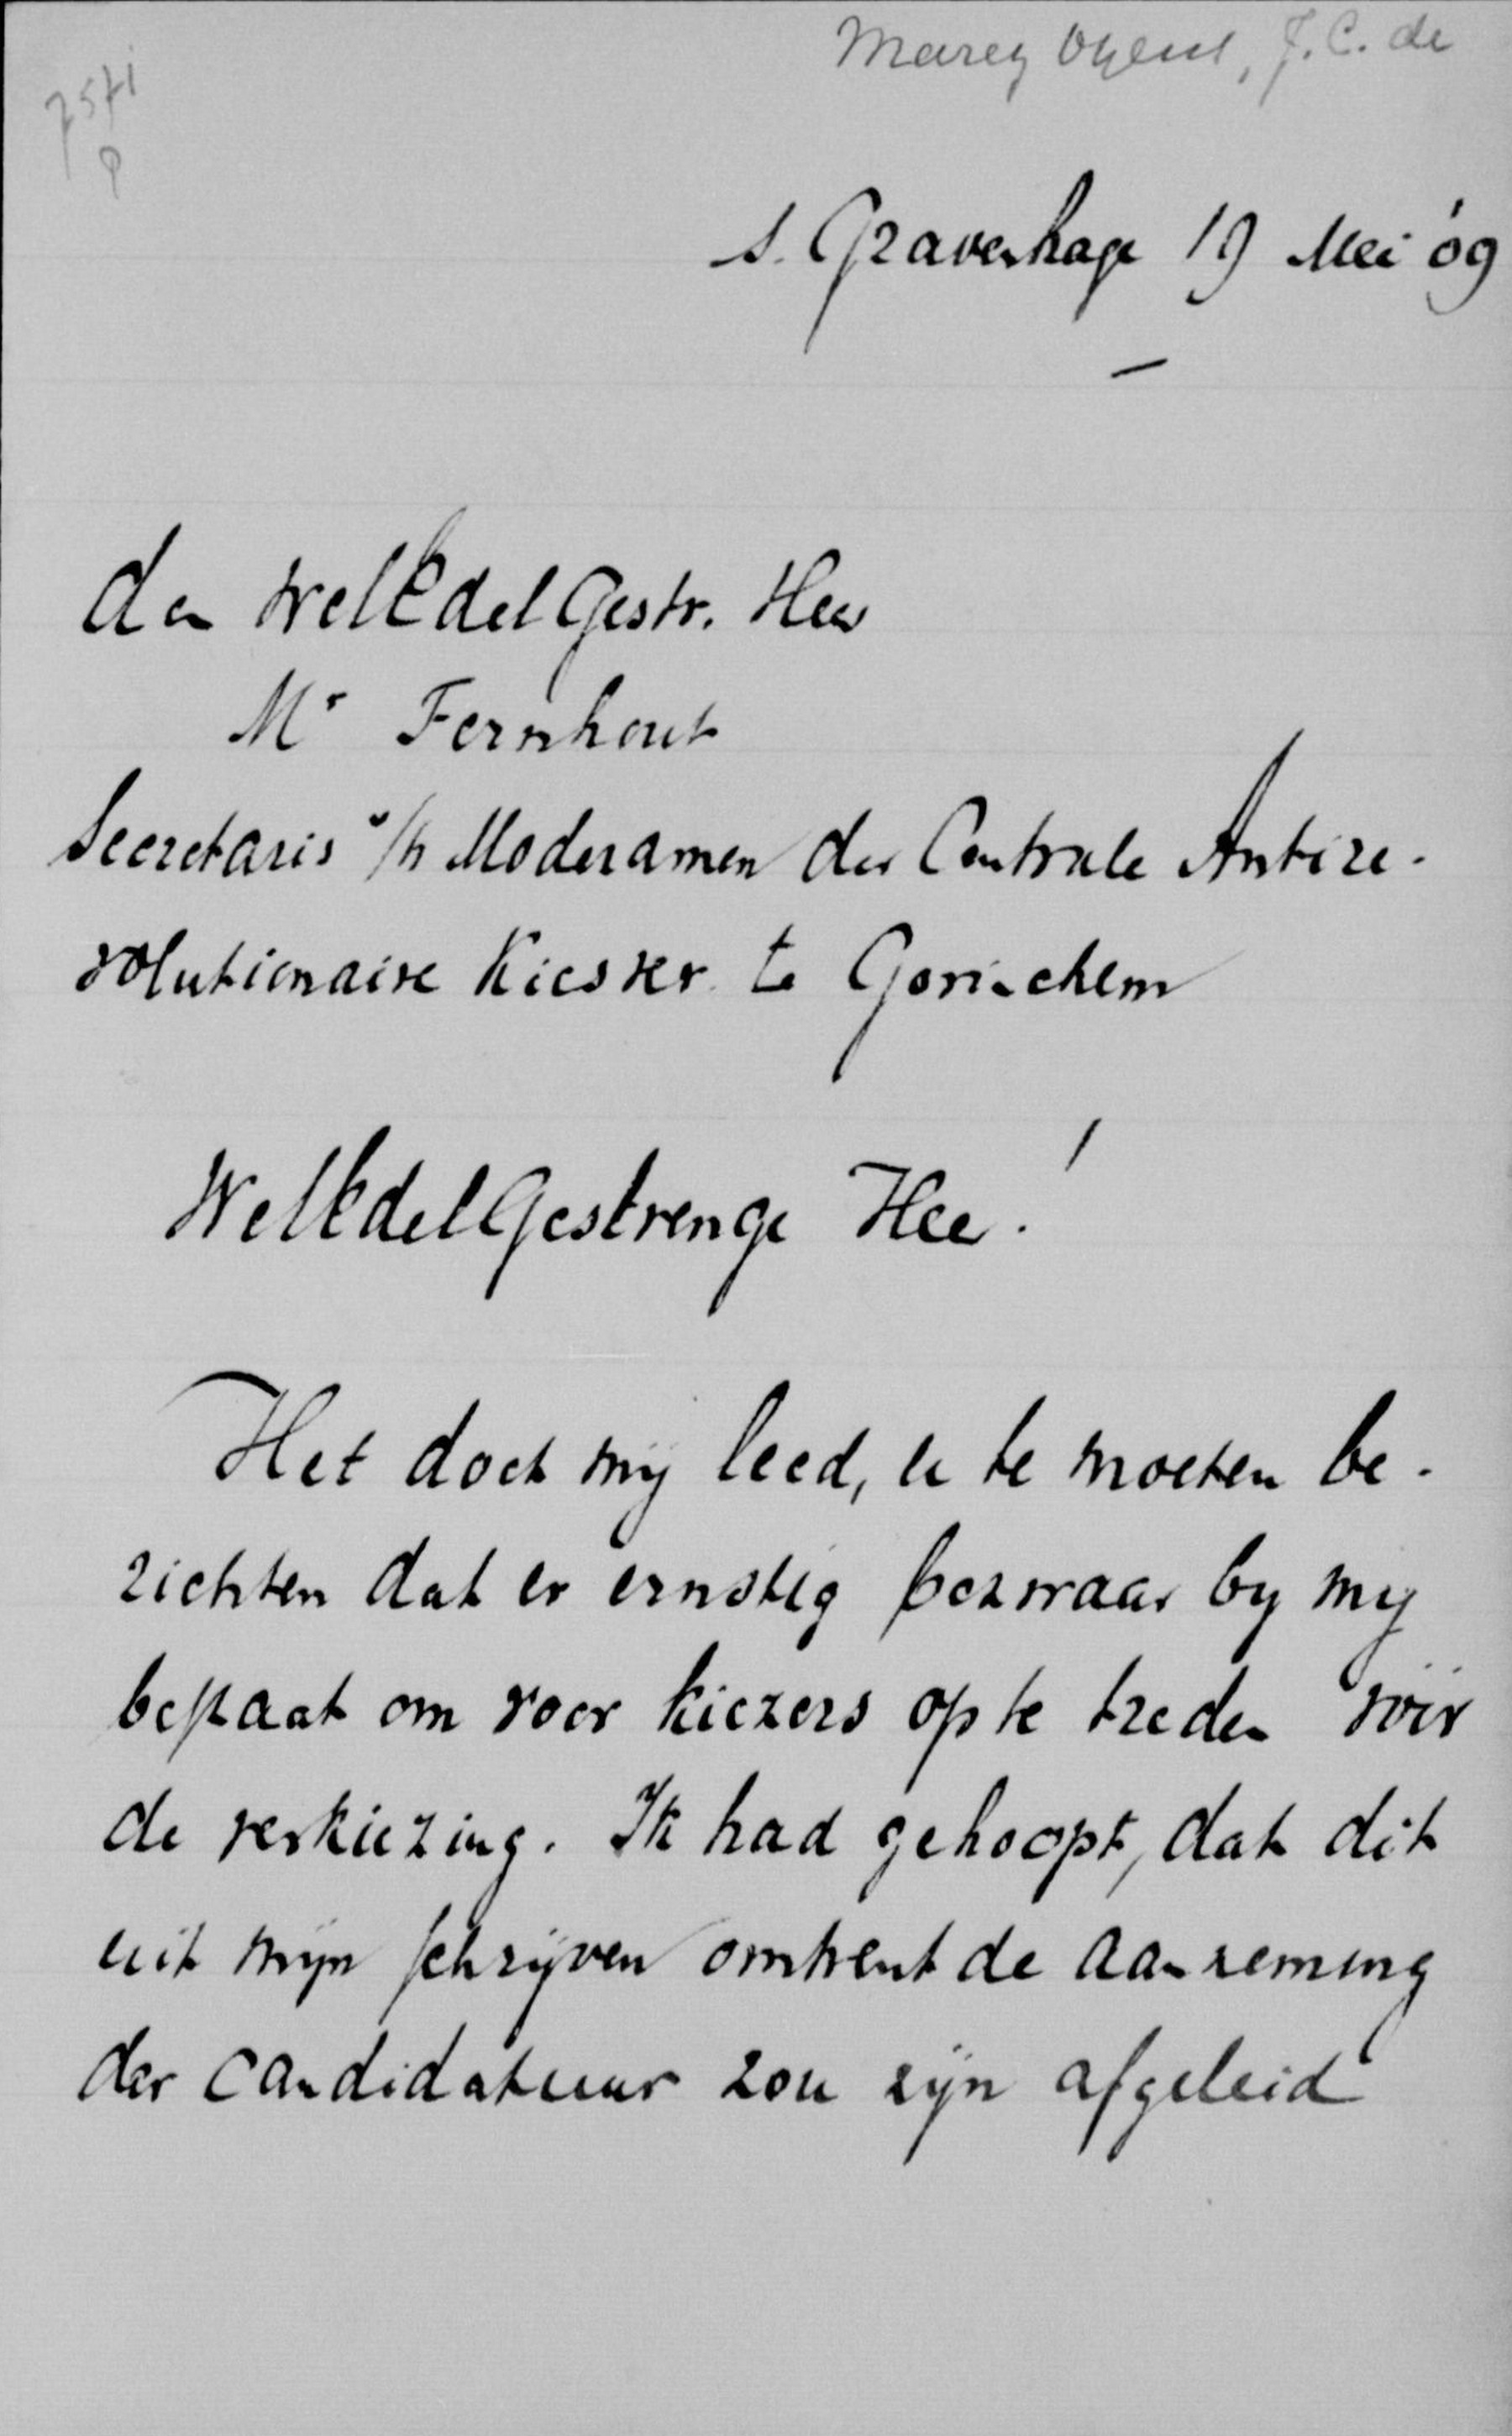 Marez Oyens, J.C. de
s. Gravenhage 19 Mei '09
den WelEdelGestr. Heer
Mr Fernhout
Secretaris v/h Moderamen der Centrale Antire-
volutionaire Kiesver. te Gorinchem
WelEdelGestrenge Heer!
Het doet mij leed, u te moeten be-
richten dat er ernstig bezwaar by my
bestaat om voor kiezers op te treden vóór
de verkiezing. Ik had gehoopt, dat dit
uit mijn schrijven omtrent de aanneming
der candidatuur zou zijn afgeleid